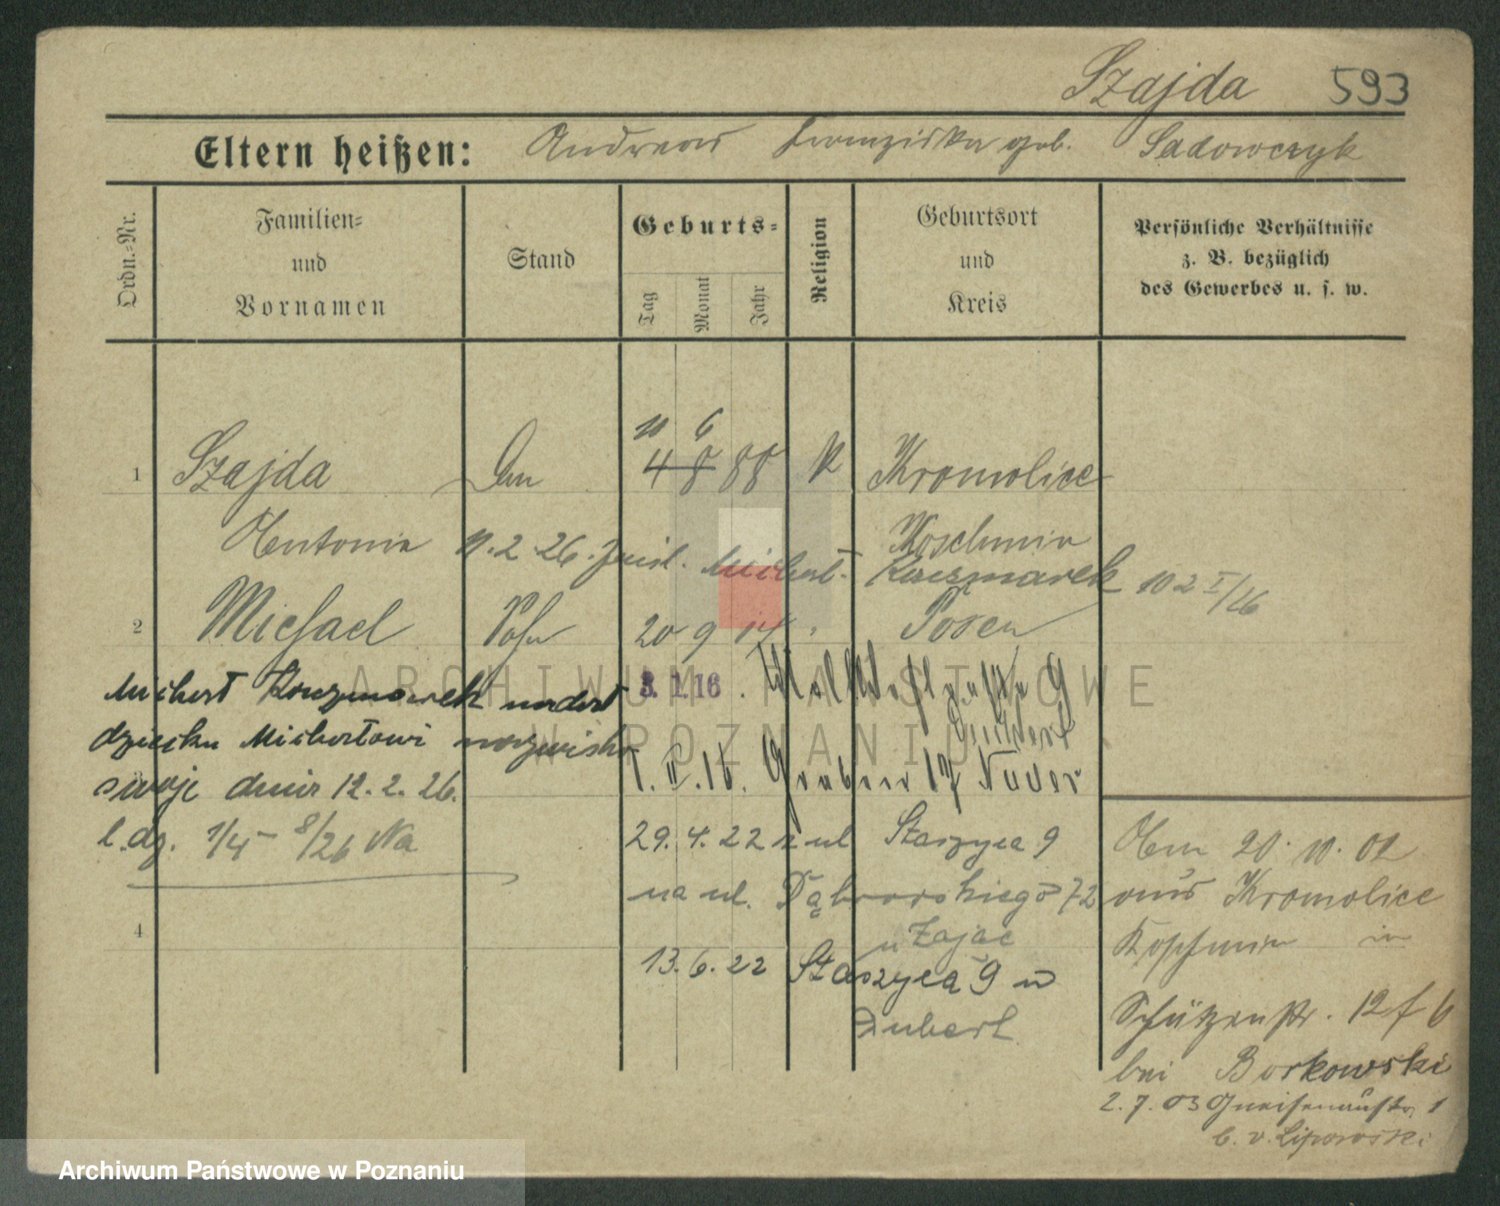 Szajda 593
Eltern heißen: Andreas Franziska geb. Sadowczyk
Ordn.=Nr.
Familien=
und
Vornamen
Stand
Geburts=
Tag
Monat
Jahr
Religion
Geburtsort
und
Kreis
Persönliche Verhältnisse
z. B. bezüglich
des Gewerbes u. s. w.
10 6
1 Szajda 4 8 88 K Kromolice
Antonia Koschmin
11.2 26. Michał Kaczmarek 10 2 I/26
2 Michael Sohn 20 9 14 Posen
3. 1. 16.
Michał Kaczmarek nadał
dziecku Michałowi nazwisko
swoje dnia 12. 2. 26.
l. dz. 1/4 - 8/26 Na
1. II. 16. Graben 17 Nader
29. 4. 22 z ul Staszyca 9
na ul. Dąbrowskiego 72
u Zając
4
13. 6. 22 Staszyca 9 u
Dubert
Am 20. 10. 02
aus Kromolice
Koschmin in
Schützenstr. 12 f b
bei Borkowski
2. 7. 03 Gneisenaustr. 1
b. v. Lipowski
ARCHIWUM PAŃSTWOWE
W POZNANIU
Archiwum Państwowe w Poznaniu